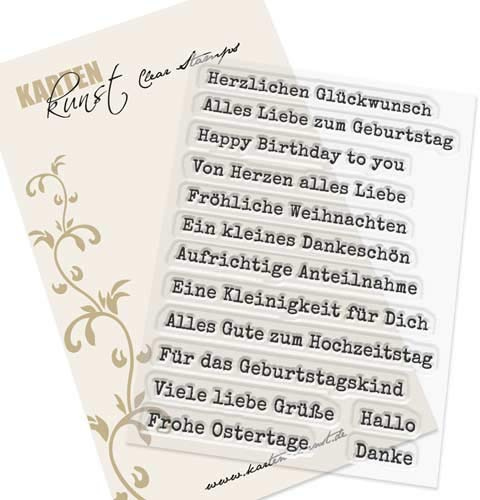 KARTEN
Kunst Clear Stamps
Herzlichen Glückwunsch
Alles Liebe zum Geburtstag
Happy Birthday to you
Von Herzen alles Liebe
Fröhliche Weihnachten
Ein kleines Dankeschön
Aufrichtige Anteilnahme
Eine Kleinigkeit für Dich
Alles Gute zum Hochzeitstag
Für das Geburtstagskind
Viele liebe Grüße
Hallo
Frohe Ostertage
Danke